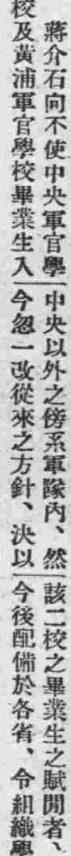 蔣介石向不使中央軍官學
校及黃浦軍官學校畢業生入
中央以外之傍系軍隊內、然
今忽一改從來之方針、決以
該二校之畢業生之賦閒者、
今後配備於各省、令組織學